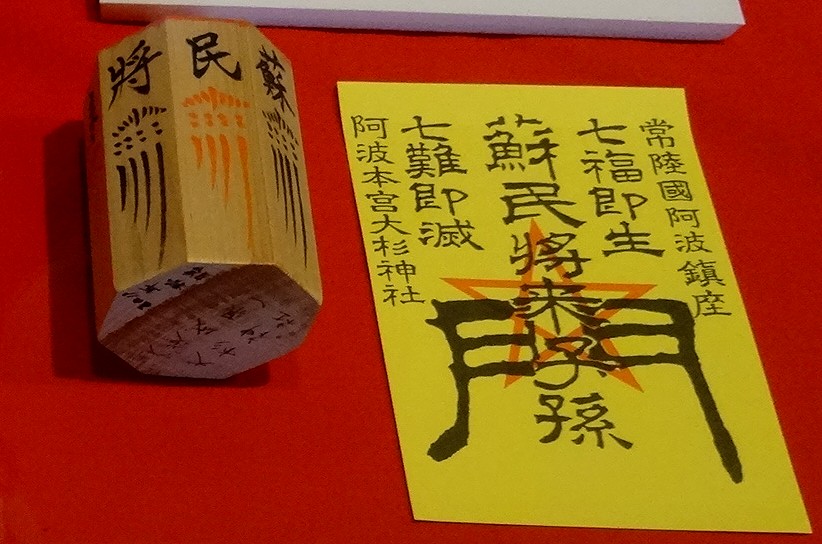 常陸國阿波鎮座
七福即生
蘇民将来子孫
門
七難即滅
阿波本宮大杉神社
蘇
民
將